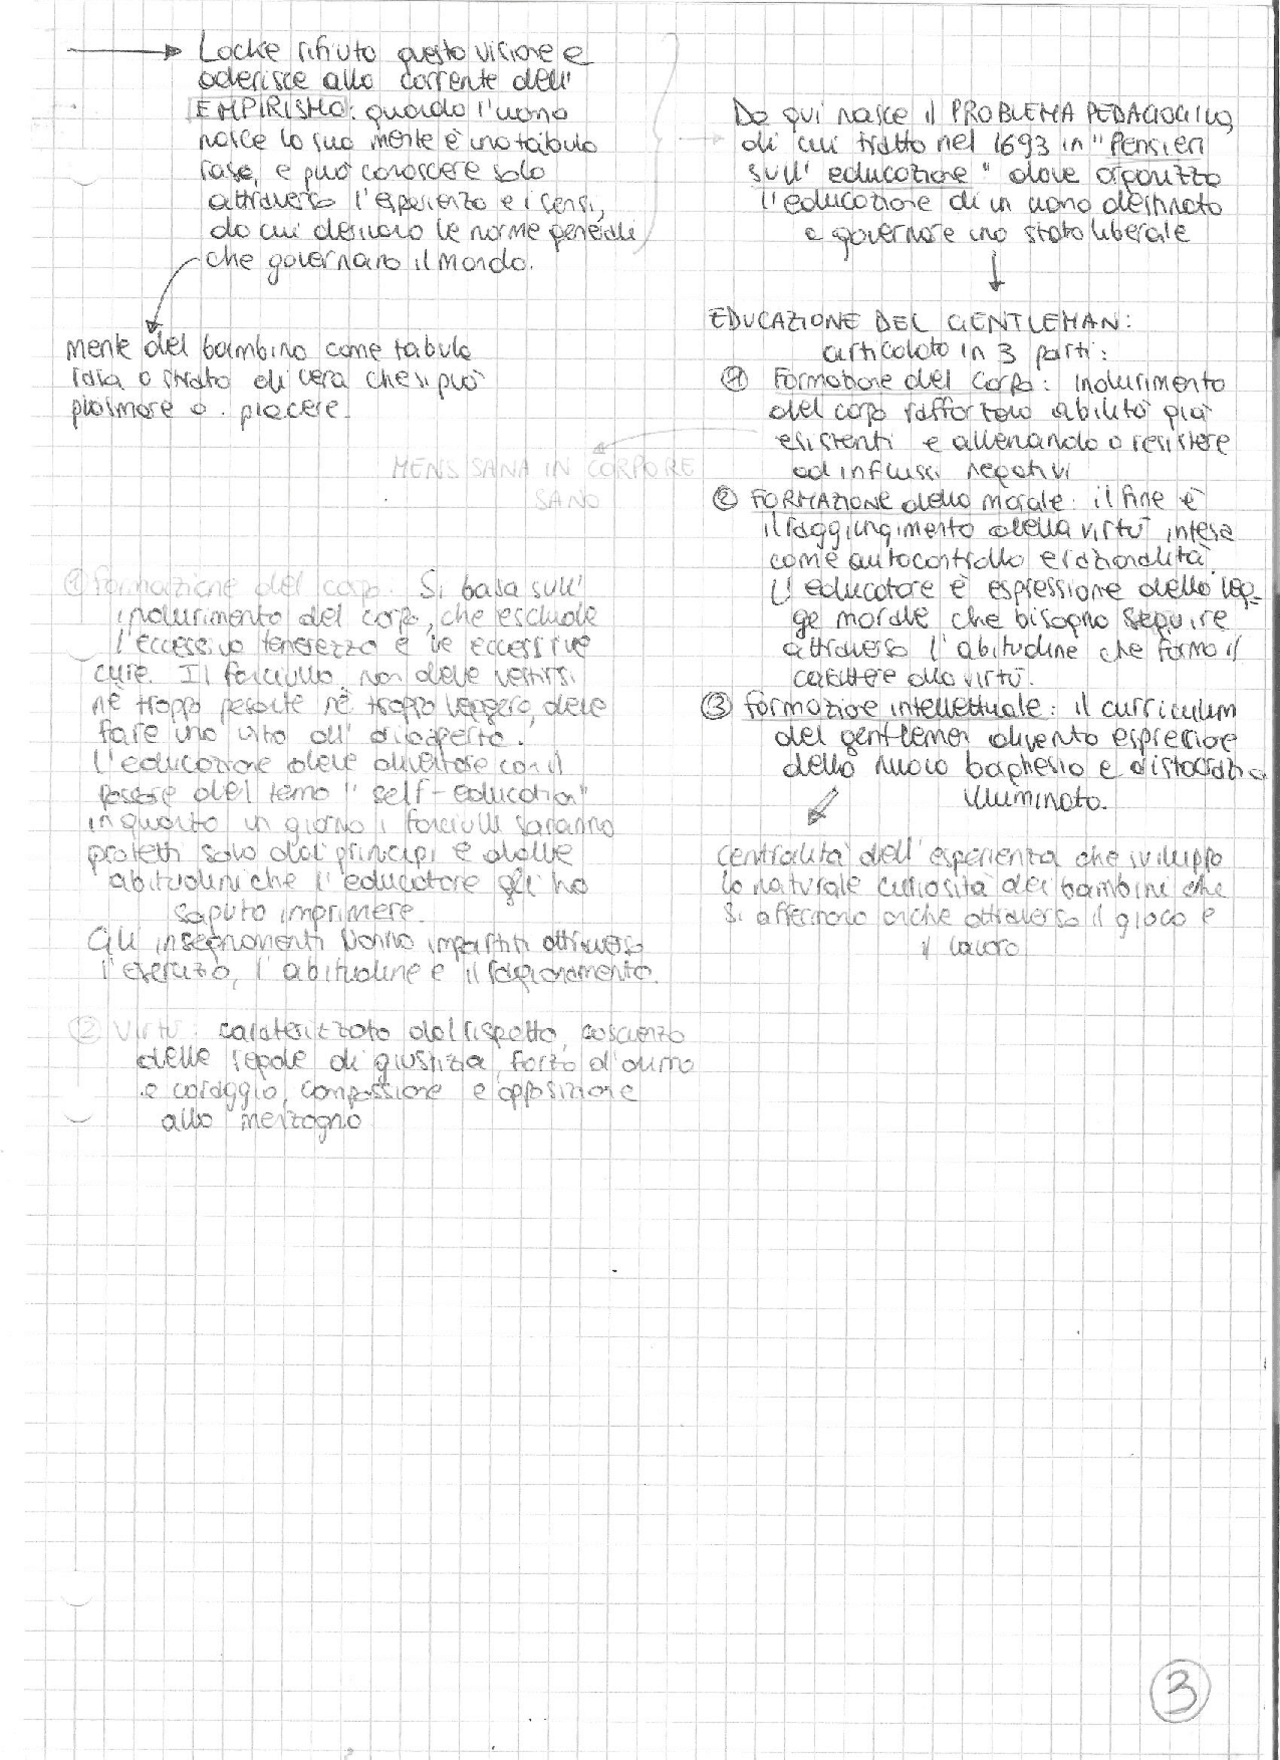 Locke rifiuta questa visione e
aderisce alla corrente dell'
EMPIRISMO: quando l'uomo
nasce la sua mente è una tabula
rasa, e può conoscere solo
attraverso l'esperienza e i sensi,
da cui derivano le norme generali
che governano il mondo.
mente del bambino come tabula
rasa o strato di cera che si può
plasmare a piacere.
Da qui nasce il PROBLEMA PEDAGOGICO,
di cui tratta nel 1693 in "Pensieri
sull' educazione" dove organizza
l'educazione di un uomo destinato
a governare uno stato liberale
EDUCAZIONE DEL GENTLEMAN:
articolata in 3 parti:
① Formazione del corpo: indurimento
del corpo rafforzando abilità già
esistenti e allenando a resistere
ad influssi negativi
MENS SANA IN CORPORE
SANO
② FORMAZIONE della morale: il fine è
il raggiungimento della virtù intesa
come autocontrollo e razionalità.
L'educatore è espressione della leg-
ge morale che bisogna seguire
attraverso l'abitudine che forma il
carattere alla virtù.
③ formazione intellettuale: il curriculum
del gentleman diventa espressione
della nuova borghesia e aristocrazia
illuminata.
centralità dell'esperienza che sviluppa
la naturale curiosità dei bambini che
si affermano anche attraverso il gioco e
il lavoro
① formazione del corpo. Si basa sull'
indurimento del corpo, che esclude
l'eccessiva tenerezza e le eccessive
cure. Il fanciullo non deve vestirsi
nè troppo pesante nè troppo leggero, deve
fare una vita all' aria aperta.
L'educazione deve diventare con il
passare del tempo "self-education"
in quanto un giorno i fanciulli saranno
protetti solo dai principi e dalle
abitudini che l'educatore gli ha
saputo imprimere.
Gli insegnamenti vanno impartiti attraverso
l'esercizio, l'abitudine e il ragionamento.
② Virtù: caratterizzata dal rispetto, coscienza
delle regole di giustizia, forza d'animo
e coraggio, compassione e opposizione
alla menzogna
3